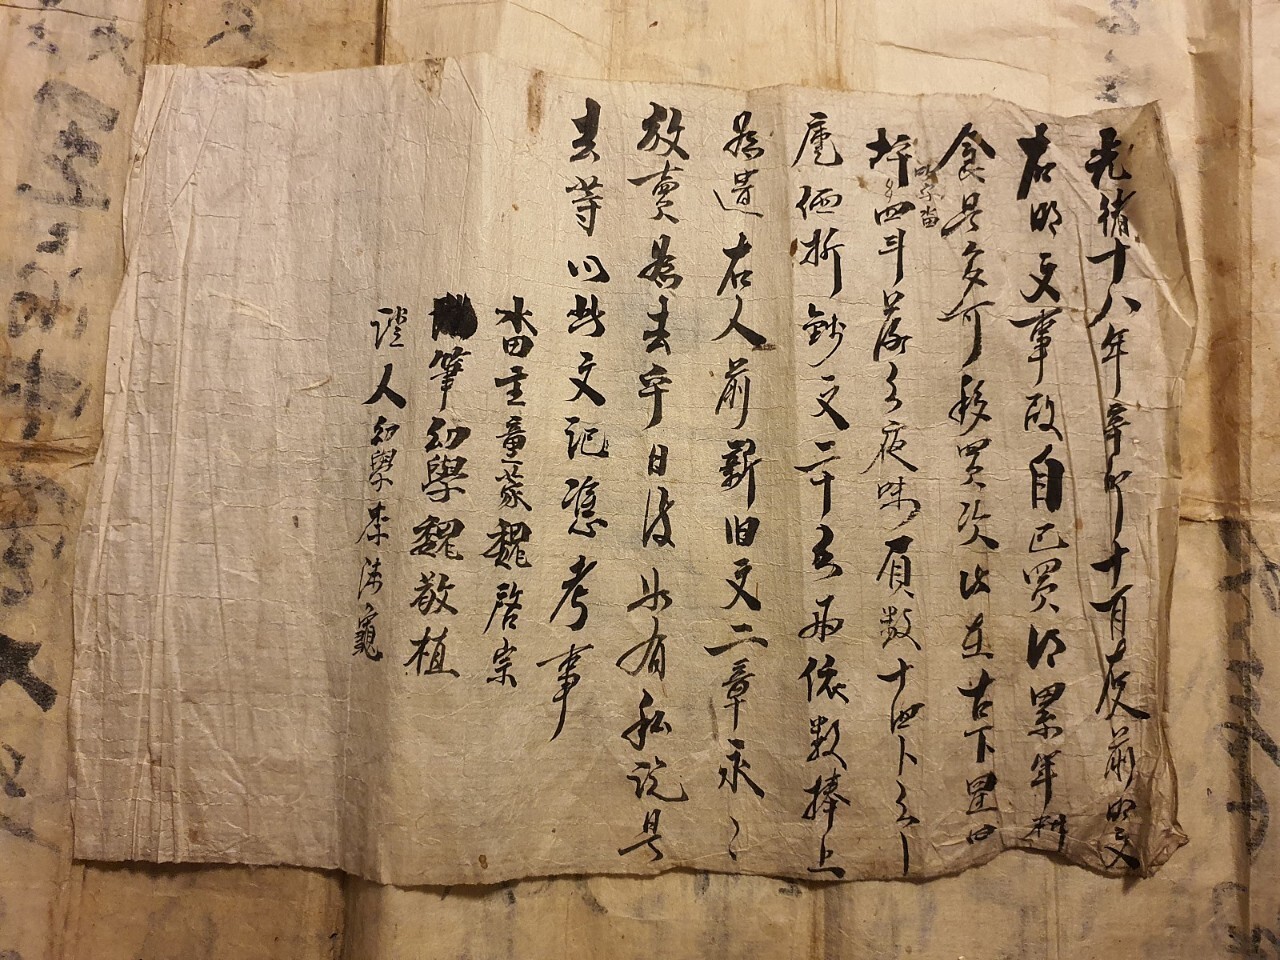 光緖十八年辛卯十二月 前明文
右明文事段自己買得累年耕
食是多可移買次以在古下里四
坪 字畓四斗落 夜味 負數十四卜
庫価折錢文二十 両依數捧上
爲遣右人前新旧文二章永〻
放賣爲去乎日後 有私說是
去等以此文記憑考事
畓主童蒙魏啓宗
筆幼學魏敬植
證人幼學李 龜